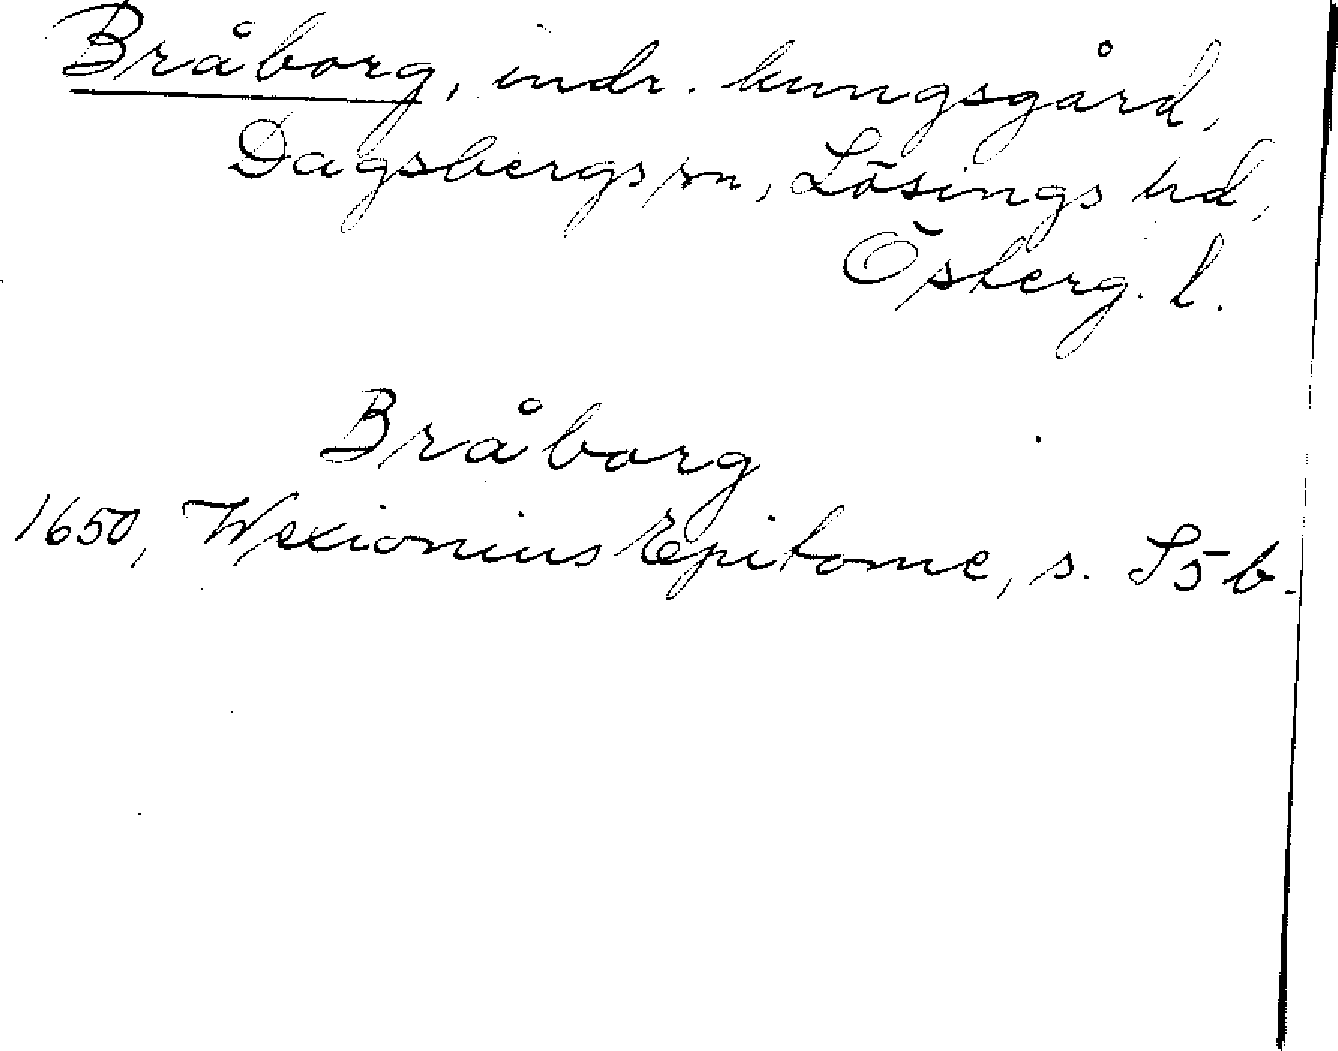 Bråborg, indr. kungsgård,
Dagsbergs sn, Lösings hd,
Österg. l.
Bråborg
1650, Wexionius Epitome, s. S5b.